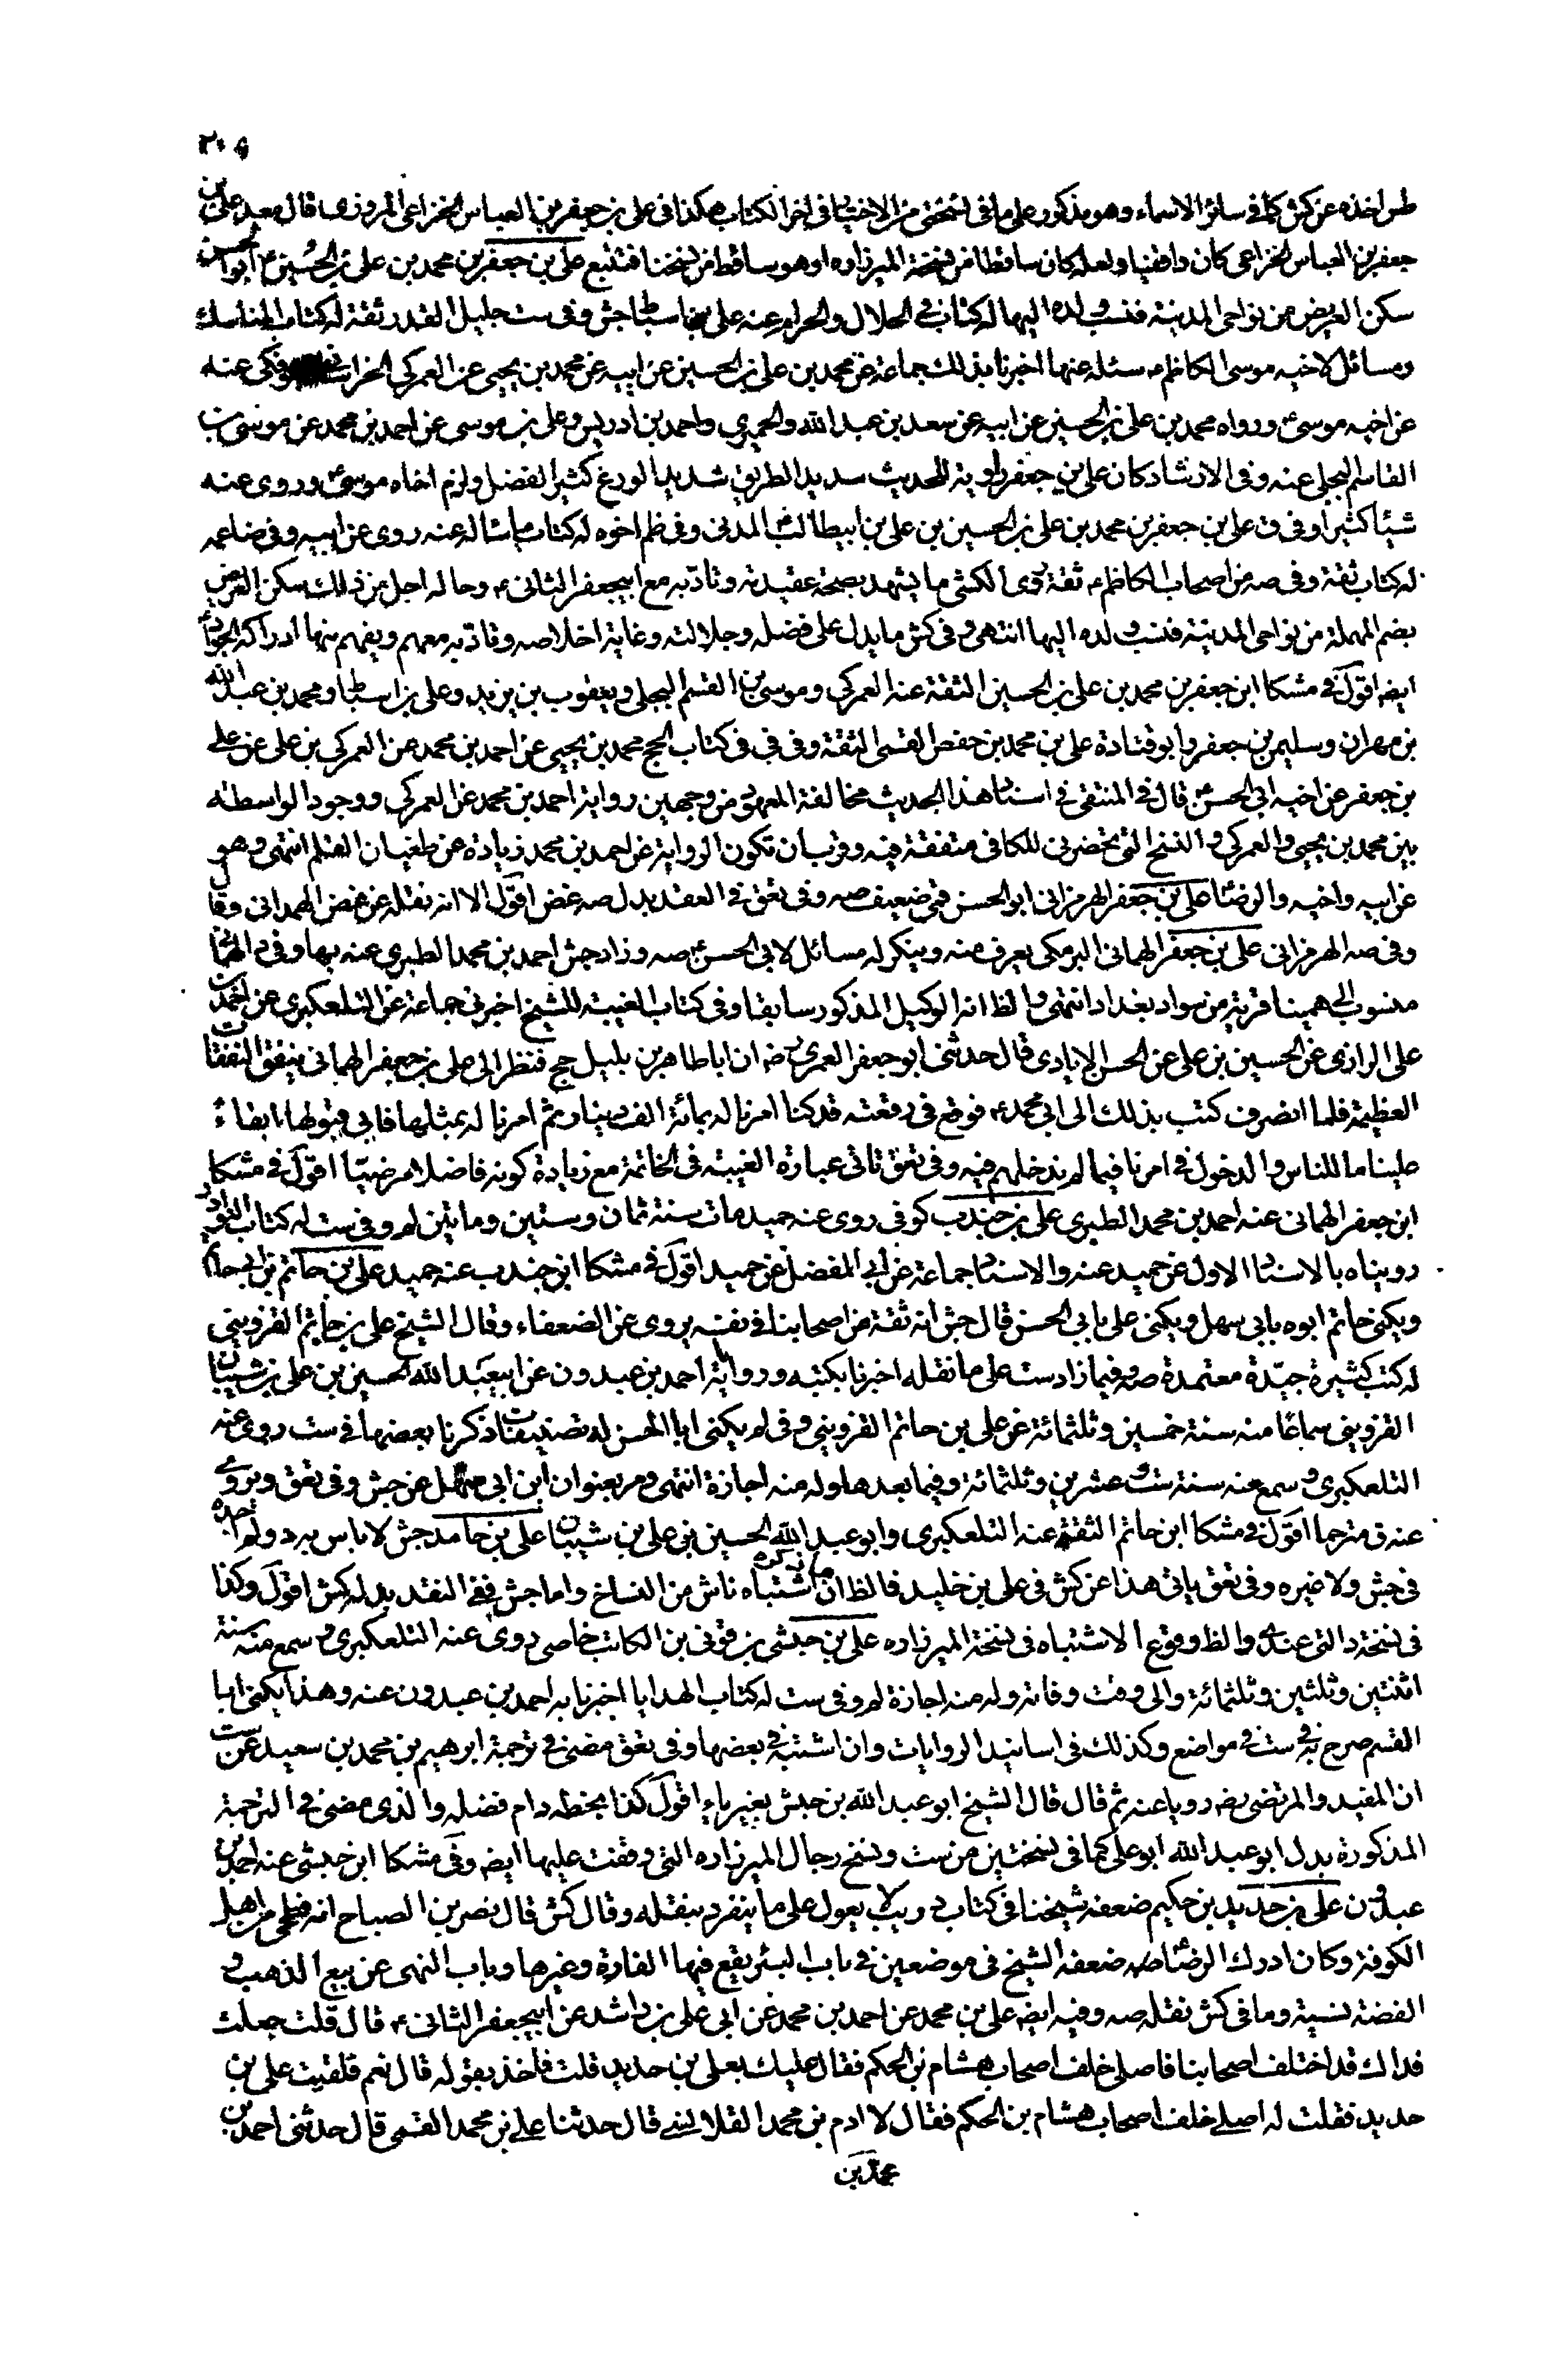 ٢٠٩
طس اخذه عن كش كما فى سائر الاسماء وهو مذكور على ما فى نسختى من الاختيار فى اخر الكتاب هكذا فى على بن جعفر بن العباس الخزاعى المروزى قال معد على بن
جعفر بن العباس الخزاعى كان واقفيا ولعله كان ساقطا من نسخة الميرزاده او هو ساقط من نسخنا فتتبع على بن جعفر بن محمد بن على بن الحسين ع ابو الحسن
سكن العريض من نواحى المدينة فنسب ولده اليها له كتاب فى الحلال والحرام عنه على بن اسباط جش وفى ست جليل القدر ثقة له كتاب المناسك
ومسائل لاخيه موسى الكاظم ع سئله عنها اخبرنا بذلك جماعة عن محمد بن على بن الحسين عن ابيه عن محمد بن يحيى عن العمركى الخراسانى البوفكى عنه
عن اخيه موسى ع ورواه محمد بن على بن الحسين عن ابيه عن سعد بن عبد الله والحميرى واحمد بن ادريس وعلى بن موسى عن احمد بن محمد عن موسى بن
القاسم البجلى عنه وفى الارشاد كان على بن جعفر راوية للحديث سديد الطريق شديد الورع كثير الفضل ولزم اخاه موسى ع وروى عنه
شيئا كثيرا وفى ق على بن جعفر بن محمد بن على بن الحسين بن على بن ابيطالب ع المدنى وفى ظم اخوه له كتاب ما سئاله عنه روى عن ابيه وفى ضا عمه
له كتاب ثقة وفى صه من اصحاب الكاظم ع ثقة روى الكشى ما يشهد بصحة عقيدته وتادبه مع ابيجعفر الثانى ع وحاله اجل من ذلك سكن العريض
بضم المهملة من نواحى المدينة فنسب ولده اليها انتهى وفى كش ما يدل على فضله وجلالته وغاية اخلاصه وتادبه معهم ويفهم منها ادراكه الجواد ع
ايضه اقول فى مشكا ابن جعفر بن محمد بن على بن الحسين الثقة عنه العمركى وموسى بن القسم البجلى ويعقوب بن يزيد وعلى بن اسباط ومحمد بن عبد الله
بن مهران وسليم بن جعفر وابو قتادة على بن محمد بن حفص القمى الثقة وفى فى فى كتاب الحج محمد بن يحيى عن احمد بن محمد عن العمركى بن على عن على
بن جعفر عن اخيه ابى الحسن ع قال فى المنتقى فى اسناد هذا الحديث مخالفة المعهود من وجهين رواية احمد بن محمد عن العمركى ووجود الواسطة
بين محمد بن يحيى والعمركى والنسخ التى تحضرنى للكافى متفقة فيه وقرب ان تكون الرواية عن احمد بن محمد زيادة عن طغيان القلم انتهى وهو
عن ابيه واخيه والرضا ع على بن جعفر الهرمزانى ابو الحسن قمى ضعيف صه وفى تعق فى النقد بدل صه غض اقول الا انه نقله عن غض الهمدانى وقال
وفى صه الهرمزانى على بن جعفر الهمانى البرمكى يعرف منه وينكر له مسائل لابى الحسن ع صه وزاد جش احمد بن محمد الطبرى عنه بها وفى د الهمانى
منسوب الى همينا قرية من سواد بغداد انتهى والظ انه الوكيل المذكور سابقا وفى كتاب الغيبة للشيخ اخبرنى جماعة عن التلعكبرى عن احمد بن
على الرازى عن الحسين بن على عن الحسن الايادى قال حدثنى ابو جعفر العمرى رضه ان ابا طاهر بن بلبيل حج فنظر الى على بن جعفر الهمانى ينفق النفقات
العظيمة فلما انصرف كتب بذلك الى ابى محمد ع فوقع فى رقعته قد كنا امرنا له بمائة الف دينار ثم امرنا له بمثلها فابى قبولها ابقاء
علينا ما للناس والدخول فى امرنا فيما لم ندخلهم فيه وفى تعق تاتى عبارة الغيبة فى الخاتمة مع زيادة كونه فاضلا مرضيا اقول فى مشكا
ابن جعفر الهمانى عنه احمد بن محمد الطبرى على بن جندب كوفى روى عنه حميد مات سنة ثمان وستين ومائتين لم وفى ست له كتاب النوادر
رويناه بالاسناد الاول عن حميد عنه والاسناد جماعة عن ابى المفضل عن حميد اقول فى مشكا ابن جندب عنه حميد على بن حاتم بن ابى حاتم
ويكنى حاتم ابوه بابى سهل ويكنى على بابى الحسن قال جش انه ثقة من اصحابنا فى نفسه يروى عن الضعفاء وقال الشيخ على بن حاتم القزوينى
له كتب كثيرة جيدة معتمدة صه وفيما زاد ست على ما نقله اخبرنا بكتبه ورواياته احمد بن عبدون عن ابيعبد الله الحسين بن على بن شيبان
القزوينى سماعا منه سنة خمسين وثلثمائة عن على بن حاتم القزوينى وفى لم يكنى ابا الحسن له تصنيفات ذكرنا بعضها فى ست روى عنه
التلعكبرى وسمع عنه سنة ست وعشرين وثلثمائة وفيما بعدها وله منه اجازة انتهى ومر بعنوان ابن ابى سهل عن جش وفى تعق ويروى
عنه ق مترحما اقول فى مشكا ابن حاتم الثقة عنه التلعكبرى وابو عبد الله الحسين بن على بن شيبان على بن حامد جش لا باس به د ولم اجده
فى جش ولا غيره وفى تعق ياتى هذا عن كش فى على بن خليد فالظ ان ما ذكره اشتباه ناش من النساخ واما جش ففى النقد بدله كش اقول وكذا
فى نسخة د التى عندى والظ وقوع الاشتباه فى نسخة الميرزاده على بن حبشى بن قونى بن الكاتب خاصى روى عنه التلعكبرى وسمع منه سنة
اثنتين وثلثين وثلثمائة والى وقت وفاته وله منه اجازة لم وفى ست له كتاب الهدايا اخبرنا به احمد بن عبدون عنه وهذا يكنى ابا
القسم صرح به فى ست فى مواضع وكذلك فى اسانيد الروايات وان اشتبه فى بعضها وفى تعق مضى فى ترجمة ابرهيم بن محمد بن سعيد عن ست
ان المفيد والمرتضى رضه رويا عنه ثم قال قال الشيخ ابو عبد الله بن حبش بغير ياء اقول كذا بخطه دام فضله والذى مضى فى الترجمة
المذكورة بدل ابو عبد الله ابو على كما فى نسختين من ست ونسخ رجال الميرزاده التى وقفت عليها ايضه وفى مشكا ابن حبشى عنه احمد بن
عبدون على بن حديد بن حكيم ضعفه شيخنا فى كتاب د ويب لا يعول على ما ينفرد بنقله وقال كش قال نصر بن الصباح انه فطحى من اهل
الكوفة وكان ادرك الرضا ع صه ضعفه الشيخ فى موضعين فى باب البئر يقع فيها الفارة وغيرها وباب النهى عن بيع الذهب ب
الفضة نسية وما فى كش نقله صه وفيه ايضه على بن محمد عن احمد بن محمد عن ابى على بن راشد عن ابيجعفر الثانى ع قال قلت جعلت
فداك قد اختلف اصحابنا فاصلى خلف اصحاب هشام بن الحكم فقال عليك بعلى بن حديد قلت فاخذ بقوله قال نعم فلقيت على بن
حديد فقلت له اصلى خلف اصحاب هشام بن الحكم فقال لا ادم بن محمد القلانسى قال حدثنا على بن محمد القمى قال حدثنى احمد بن
محمد بن